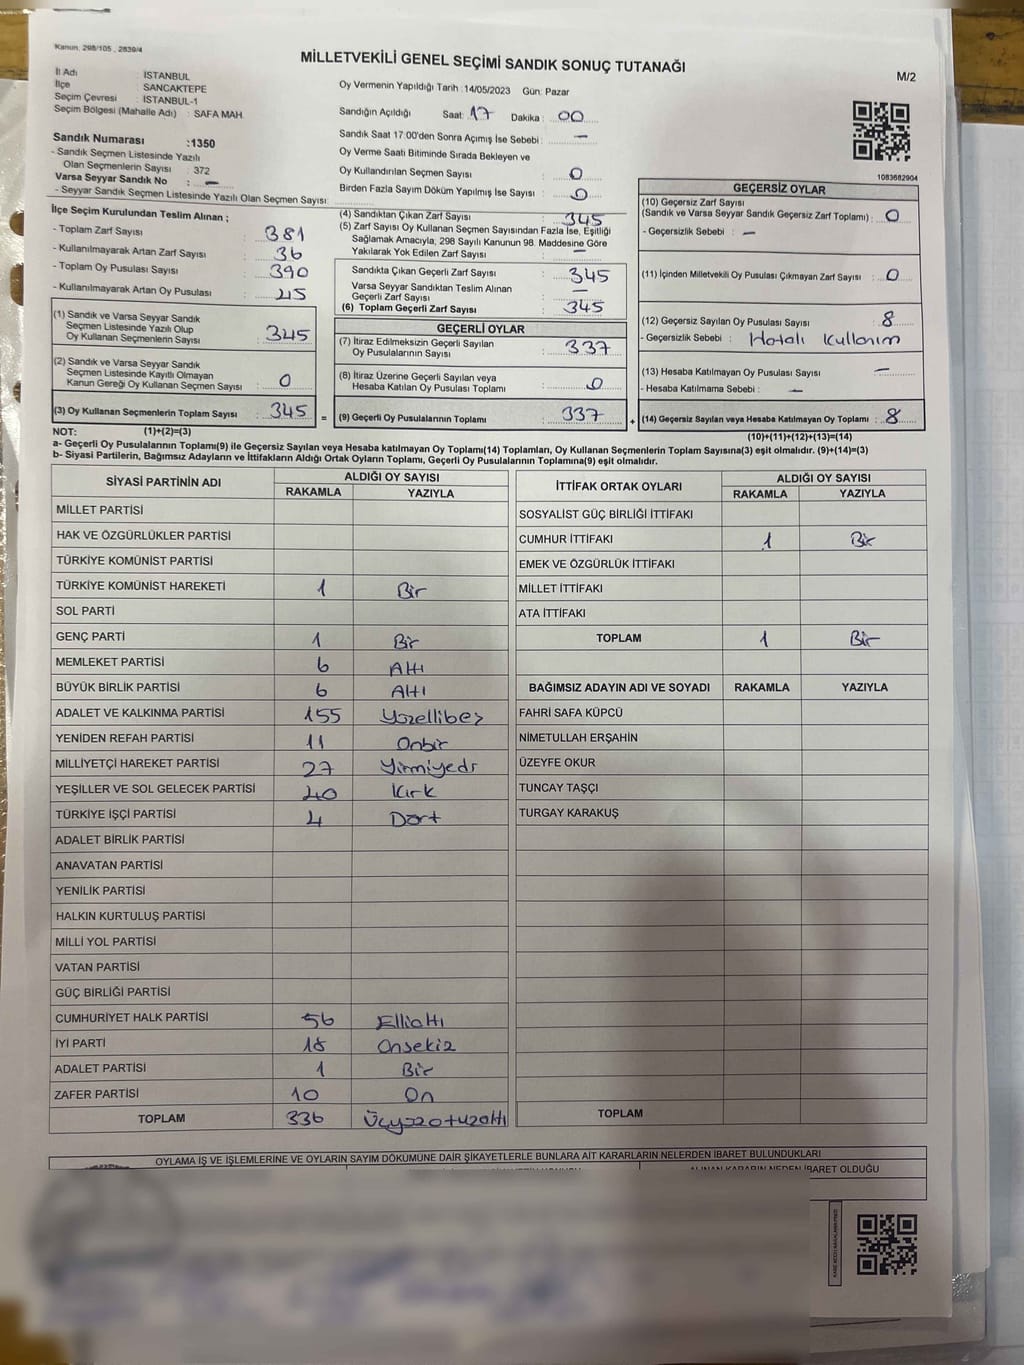 Kanun, 298/105 , 2839/4
MİLLETVEKİLİ GENEL SEÇİMİ SANDIK SONUÇ TUTANAĞI
M/2
İl Adı : İSTANBUL
İlçe : SANCAKTEPE
Seçim Çevresi : İSTANBUL-1
Seçim Bölgesi (Mahalle Adı) : SAFA MAH.
Sandık Numarası :1350
- Sandık Seçmen Listesinde Yazılı
Olan Seçmenlerin Sayısı : 372
Varsa Seyyar Sandık No : —
- Seyyar Sandık Seçmen Listesinde Yazılı Olan Seçmen Sayısı:
Oy Vermenin Yapıldığı Tarih :14/05/2023 Gün: Pazar
Sandığın Açıldığı Saat: 17 Dakika : 00
Sandık Saat 17:00'den Sonra Açımış İse Sebebi : —
Oy Verme Saati Bitiminde Sırada Bekleyen ve
Oy Kullandırılan Seçmen Sayısı : 0
Birden Fazla Sayım Döküm Yapılmış İse Sayısı : 0
1083682904
İlçe Seçim Kurulundan Teslim Alınan ;
- Toplam Zarf Sayısı : 381
- Kullanılmayarak Artan Zarf Sayısı : 36
- Toplam Oy Pusulası Sayısı : 390
- Kullanılmayarak Artan Oy Pusulası : 45
(1) Sandık ve Varsa Seyyar Sandık
Seçmen Listesinde Yazılı Olup
Oy Kullanan Seçmenlerin Sayısı : 345
(2) Sandık ve Varsa Seyyar Sandık
Seçmen Listesinde Kayıtlı Olmayan
Kanun Gereği Oy Kullanan Seçmen Sayısı : 0
(3) Oy Kullanan Seçmenlerin Toplam Sayısı : 345 =
(4) Sandıktan Çıkan Zarf Sayısı : 345
(5) Zarf Sayısı Oy Kullanan Seçmen Sayısından Fazla İse, Eşitliği
Sağlamak Amacıyla, 298 Sayılı Kanunun 98. Maddesine Göre
Yakılarak Yok Edilen Zarf Sayısı : —
Sandıkta Çıkan Geçerli Zarf Sayısı : 345
Varsa Seyyar Sandıktan Teslim Alınan
Geçerli Zarf Sayısı : —
(6) Toplam Geçerli Zarf Sayısı : 345
GEÇERLİ OYLAR
(7) İtiraz Edilmeksizin Geçerli Sayılan
Oy Pusulalarının Sayısı : 337
(8) İtiraz Üzerine Geçerli Sayılan veya
Hesaba Katılan Oy Pusulaları Toplamı : 0
(9) Geçerli Oy Pusulalarının Toplamı : 337 +
GEÇERSİZ OYLAR
(10) Geçersiz Zarf Sayısı
(Sandık ve Varsa Seyyar Sandık Geçersiz Zarf Toplamı) : 0
- Geçersizlik Sebebi : —
(11) İçinden Milletvekili Oy Pusulası Çıkmayan Zarf Sayısı : 0
(12) Geçersiz Sayılan Oy Pusulası Sayısı : 8
- Geçersizlik Sebebi : Hatalı kullanım
(13) Hesaba Katılmayan Oy Pusulası Sayısı : —
- Hesaba Katılmama Sebebi : —
(14) Geçersiz Sayılan veya Hesaba Katılmayan Oy Toplamı : 8
NOT: (1)+(2)=(3) (10)+(11)+(12)+(13)=(14)
a- Geçerli Oy Pusulalarının Toplamı(9) ile Geçersiz Sayılan veya Hesaba katılmayan Oy Toplamı(14) Toplamları, Oy Kullanan Seçmenlerin Toplam Sayısına(3) eşit olmalıdır. (9)+(14)=(3)
b- Siyasi Partilerin, Bağımsız Adayların ve İttifakların Aldığı Oyların Toplamı, Geçerli Oy Pusulalarının Toplamına(9) eşit olmalıdır.
SİYASİ PARTİNİN ADI ALDIĞI OY SAYISI
RAKAMLA YAZIYLA
MİLLET PARTİSİ
HAK VE ÖZGÜRLÜKLER PARTİSİ
TÜRKİYE KOMÜNİST PARTİSİ
TÜRKİYE KOMÜNİST HAREKETİ 1 Bir
SOL PARTİ
GENÇ PARTİ 1 Bir
MEMLEKET PARTİSİ 6 Altı
BÜYÜK BİRLİK PARTİSİ 6 Altı
ADALET VE KALKINMA PARTİSİ 155 Yüzellibeş
YENİDEN REFAH PARTİSİ 11 Onbir
MİLLİYETÇİ HAREKET PARTİSİ 27 Yirmiyedi
YEŞİLLER VE SOL GELECEK PARTİSİ 40 Kırk
TÜRKİYE İŞÇİ PARTİSİ 4 Dört
ADALET BİRLİK PARTİSİ
ANAVATAN PARTİSİ
YENİLİK PARTİSİ
HALKIN KURTULUŞ PARTİSİ
MİLLİ YOL PARTİSİ
VATAN PARTİSİ
GÜÇ BİRLİĞİ PARTİSİ
CUMHURİYET HALK PARTİSİ 56 Ellialtı
İYİ PARTİ 18 Onsekiz
ADALET PARTİSİ 1 Bir
ZAFER PARTİSİ 10 On
TOPLAM 336 Üçyüzotuzaltı
İTTİFAK ORTAK OYLARI ALDIĞI OY SAYISI
RAKAMLA YAZIYLA
SOSYALİST GÜÇ BİRLİĞİ İTTİFAKI
CUMHUR İTTİFAKI 1 Bir
EMEK VE ÖZGÜRLÜK İTTİFAKI
MİLLET İTTİFAKI
ATA İTTİFAKI
TOPLAM 1 Bir
BAĞIMSIZ ADAYIN ADI VE SOYADI RAKAMLA YAZIYLA
FAHRİ SAFA KÜPCÜ
NİMETULLAH ERŞAHİN
ÜZEYFE OKUR
TUNCAY TAŞÇI
TURGAY KARAKUŞ
TOPLAM
OYLAMA İŞ VE İŞLEMLERİNE VE OYLARIN SAYIM DÖKÜMÜNE DAİR ŞİKAYETLERLE BUNLARA AİT KARARLARIN NELERDEN İBARET BULUNDUKLARI
ALINAN KARARIN NEDEN İBARET OLDUĞU